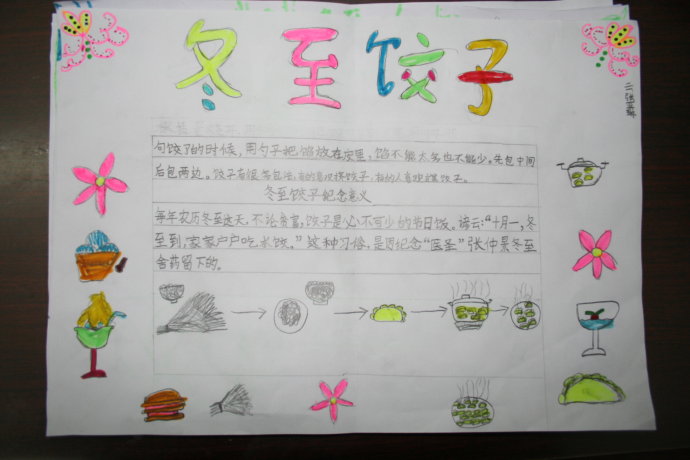 冬至饺子
包饺子的时候，用勺子把馅放在皮里，馅不能太多也不能少。先包中间
后包两边。饺子有很多包法，有的喜欢挤饺子，有的人喜欢捏饺子。
冬至饺子纪念意义
每年农历冬至这天，不论贫富，饺子是必不可少的节日饭。谚云：“十月一，冬
至到，家家户户吃水饺。”这种习俗，是因纪念“医圣”张仲景冬至
舍药留下的。